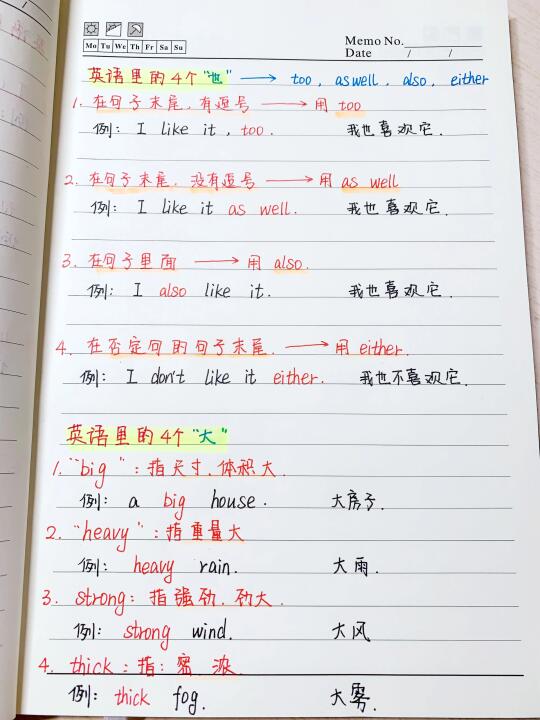 Memo No.
Mo Tu We Th Fr Sa Su
Date / /
英语里的4个"也" → too, as well, also, either
1. 在句子末尾, 有逗号 → 用 too
例: I like it, too. 我也喜欢它.
2. 在句子末尾, 没有逗号 → 用 as well
例: I like it as well. 我也喜欢它.
3. 在句子里面 → 用 also.
例: I also like it. 我也喜欢它.
4. 在否定句的句子末尾. → 用 either.
例: I don't like it either. 我也不喜欢它.
英语里的4个"大"
1. "big": 指尺寸, 体积大.
例: a big house. 大房子.
2. "heavy": 指重量大
例: heavy rain. 大雨.
3. strong: 指强劲, 劲大.
例: strong wind. 大风
4. thick: 指: 密 浓
例: thick fog. 大雾.